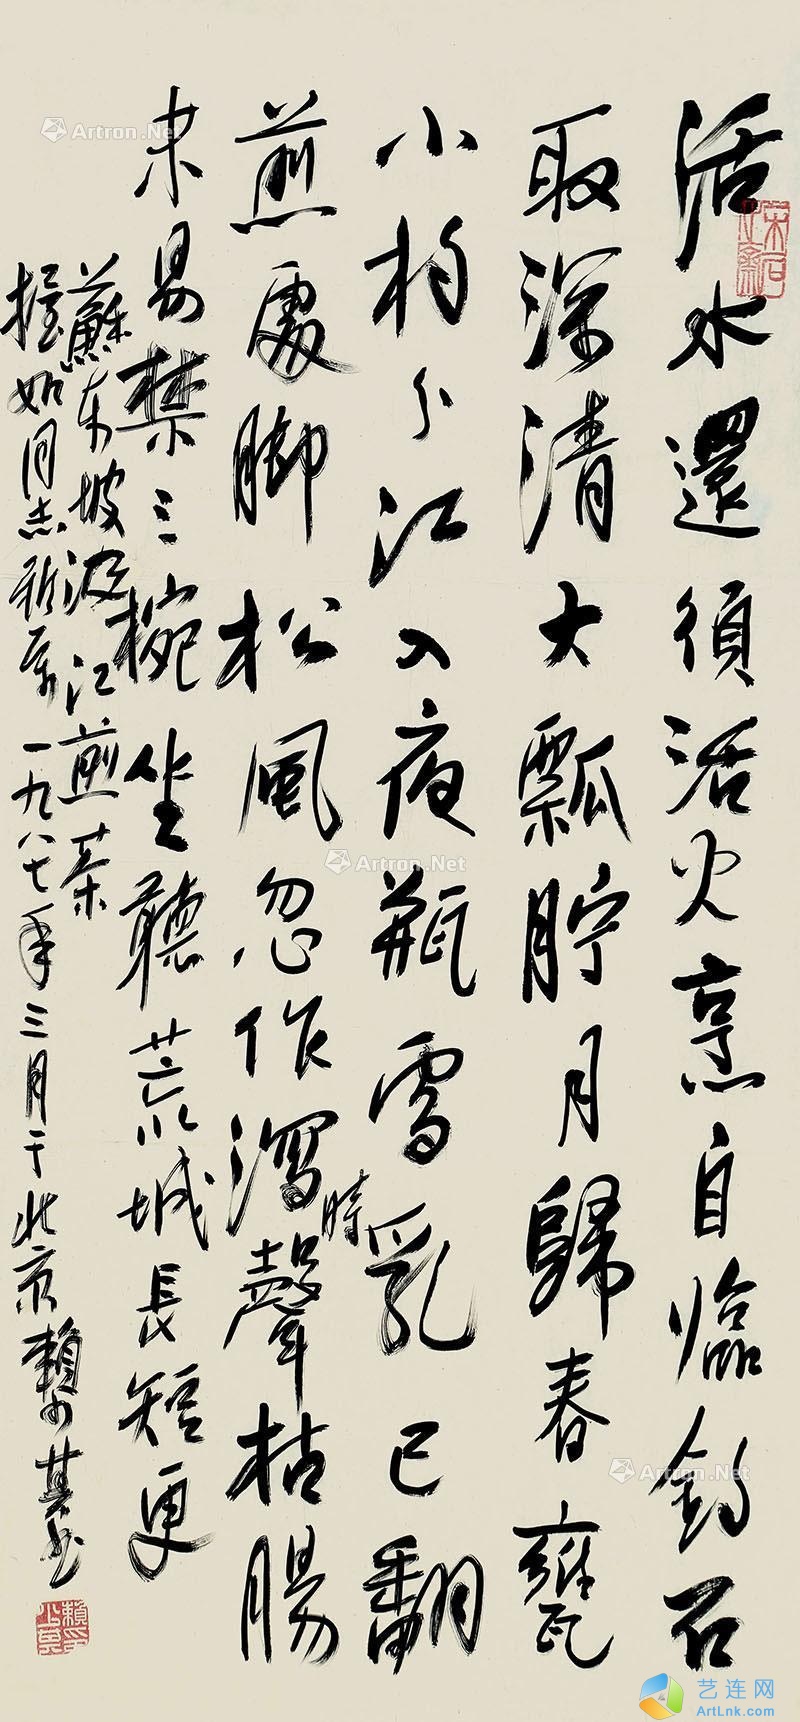 活水還須活火烹自臨釣石
取深清大瓢貯月歸春甕
小杓分江入夜瓶雪乳已翻
時
煎處脚松風忽作瀉聲枯腸
未易禁三椀坐聽荒城長短更
蘇東坡汲江煎茶
握如同志雅屬一九八七年三月于北京賴少其書
木石之齋
賴印少其
Artron.Net
Artron.Net
Artron.Net
艺连网
ArtLnk.com